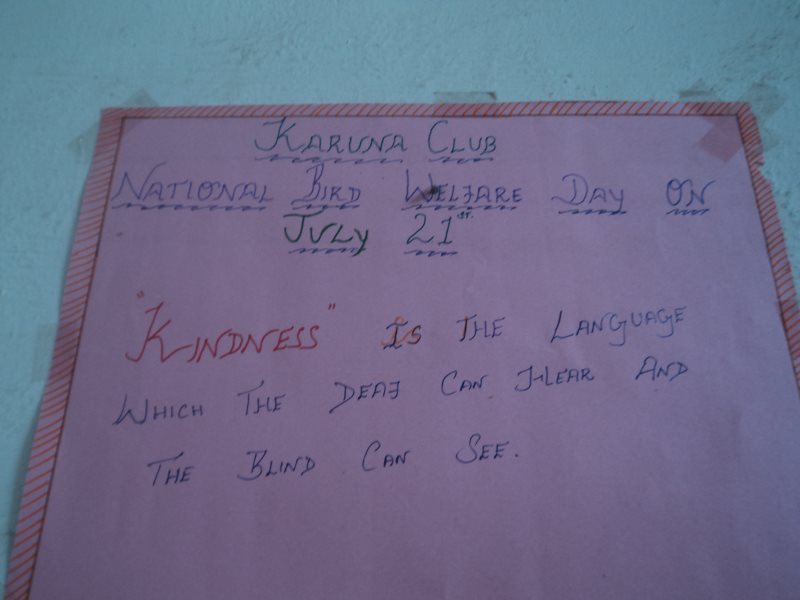 KARUNA CLUB
NATIONAL BIRD WELFARE DAY ON
JULY 21ST.
"KINDNESS" IS THE LANGUAGE
WHICH THE DEAF CAN HEAR AND
THE BLIND CAN SEE.